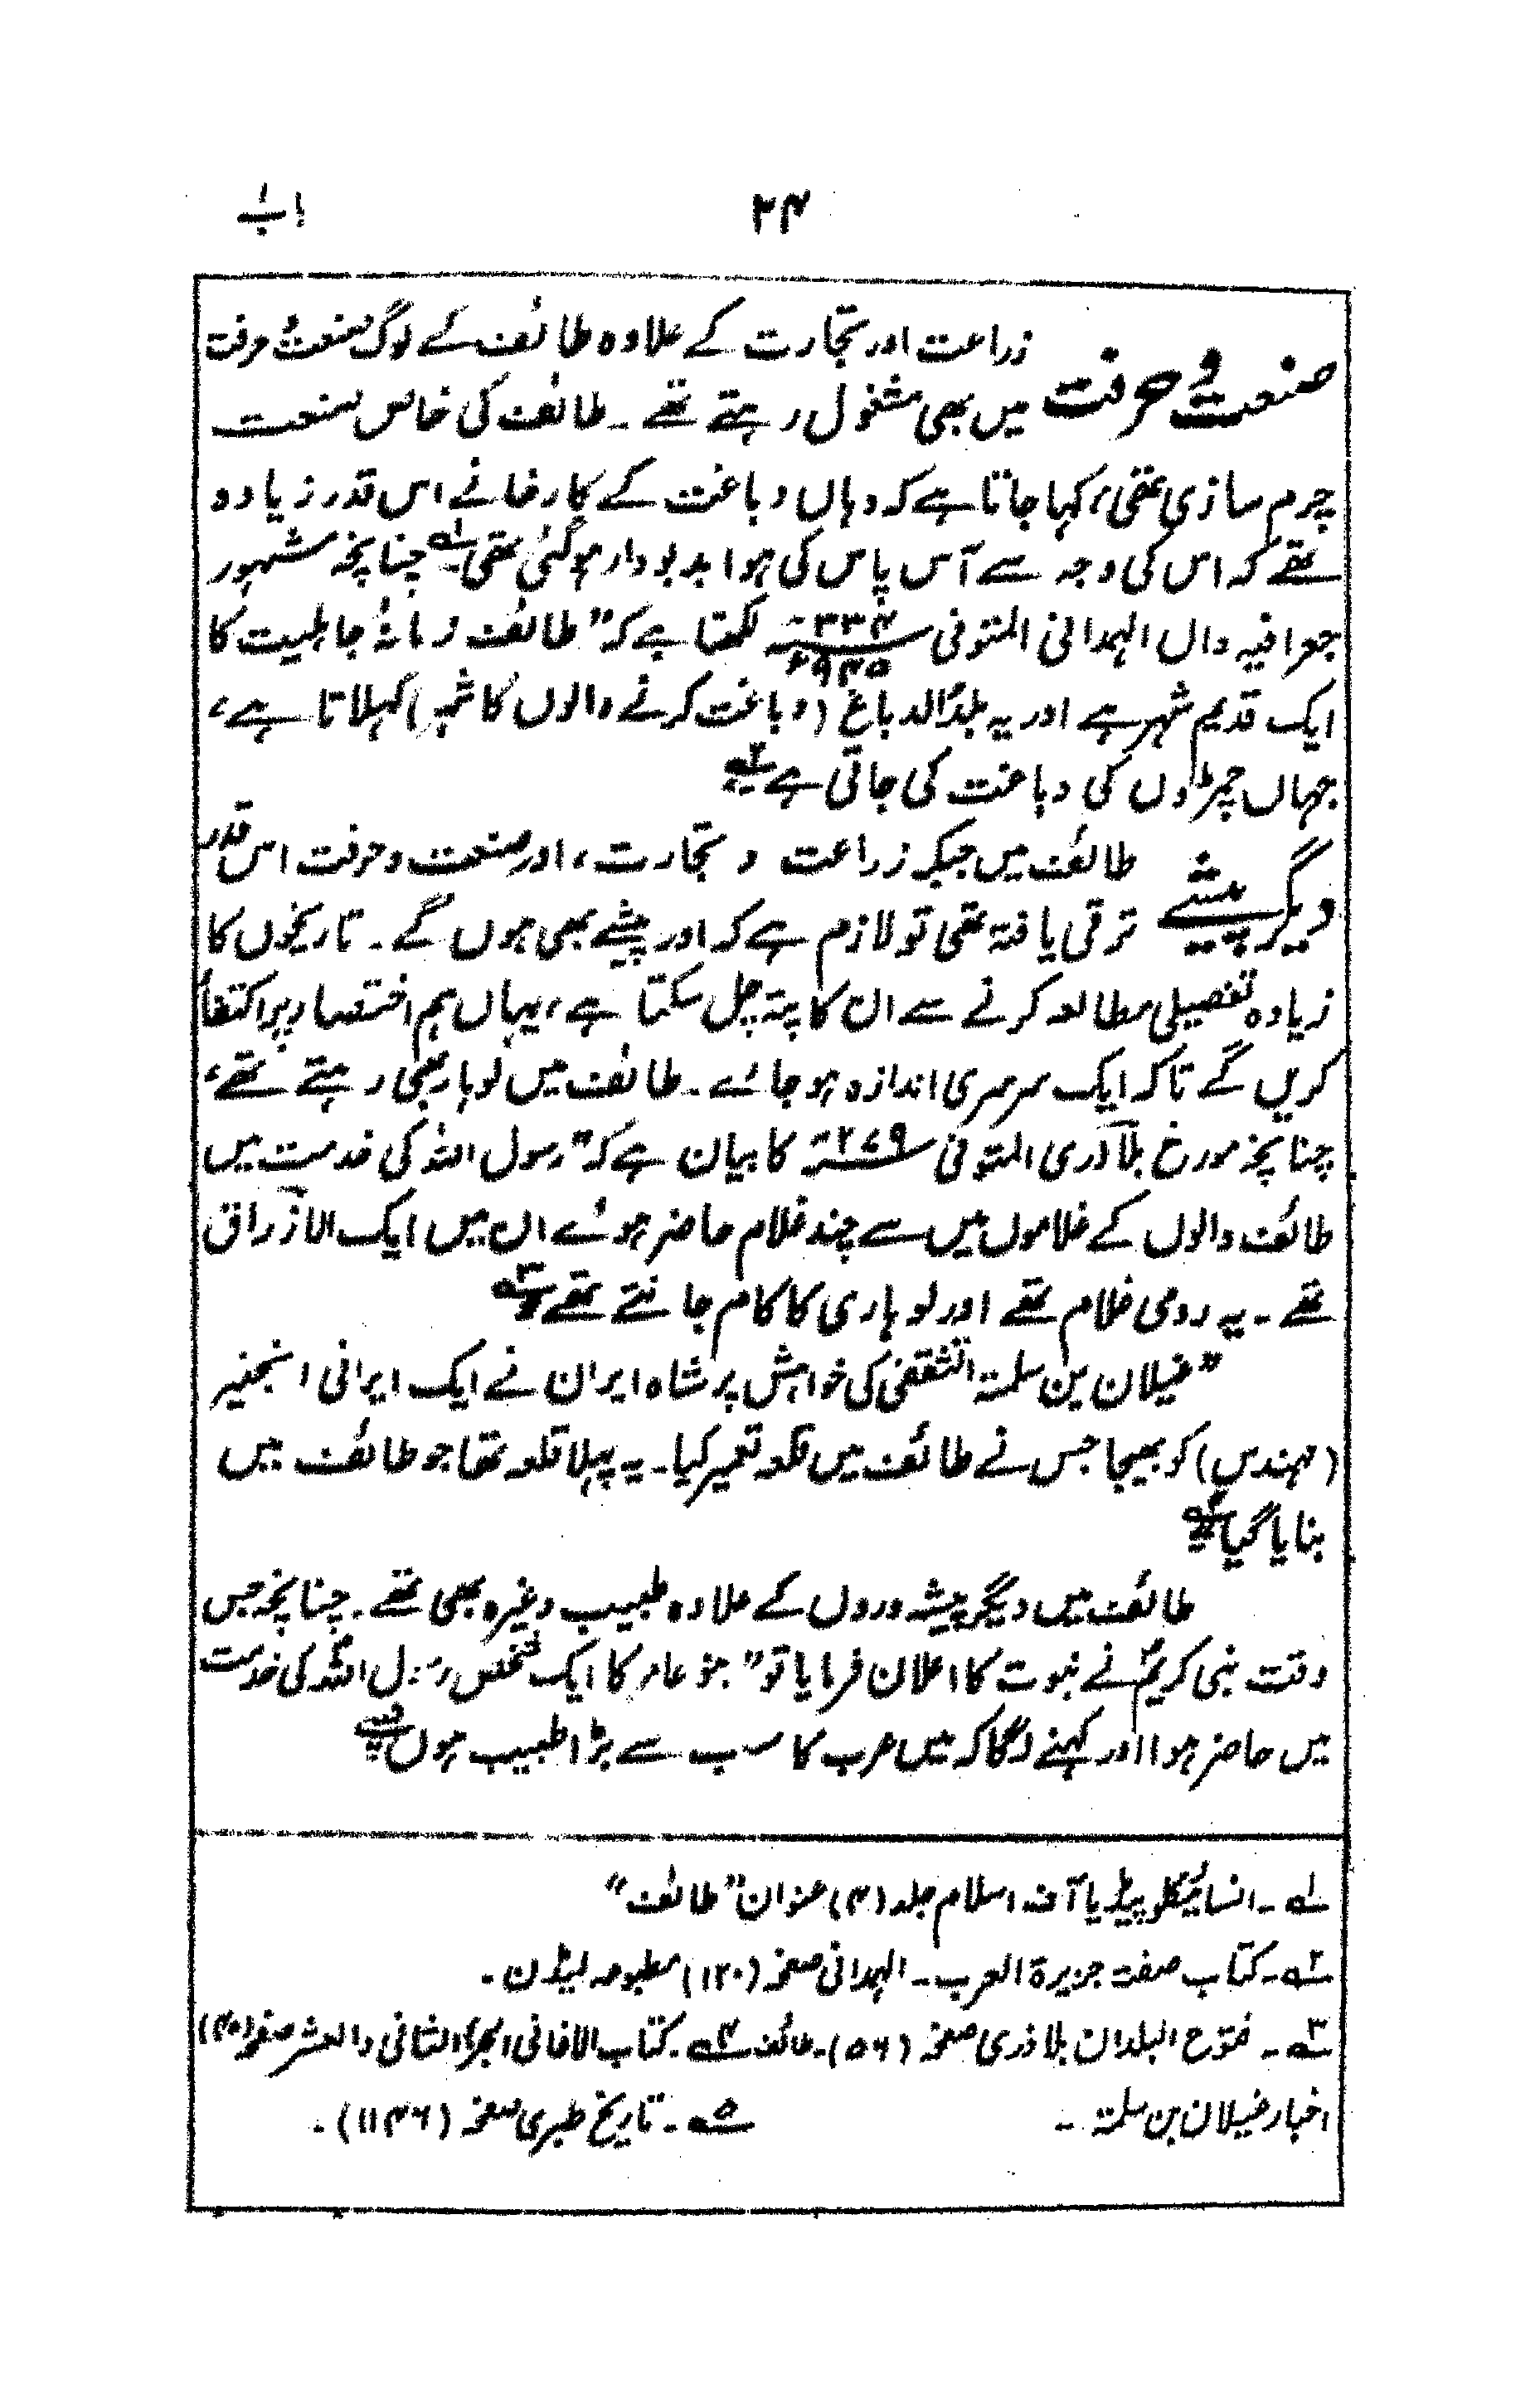 ۲۴
باب ۱
صنعت و حرفت
زراعت اور تجارت کے علاوہ طائف کے لوگ صنعت و حرفت
میں بھی مشغول رہتے تھے۔ طائف کی خاص صنعت
چرم سازی تھی، کہا جاتا ہے کہ وہاں دباغت کے کارخانے اس قدر زیادہ
تھے کہ اس کی وجہ سے آس پاس کی ہوا بدبودار ہوگئی تھی۔ ۱ چنانچہ مشہور
جغرافیہ داں الہمدانی المتوفی ۳۳۴ھ ۹۴۵ء لکھتا ہے کہ "طائف زمانۂ جاہلیت کا
ایک قدیم شہر ہے اور یہ بلدُ الدباغ (دباغت کرنے والوں کا شہر) کہلاتا ہے،
جہاں چمڑوں کی دباغت کی جاتی ہے ۲
دیگر پیشے
طائف میں جبکہ زراعت و تجارت، اور صنعت و حرفت اس قدر
ترقی یافتہ تھی تو لازم ہے کہ اور پیشے بھی ہوں گے۔ تاریخوں کا
زیادہ تفصیلی مطالعہ کرنے سے ان کا پتہ چل سکتا ہے، یہاں ہم اختصار پر اکتفا
کریں گے تاکہ ایک سرسری اندازہ ہو جائے۔ طائف میں لوہار بھی رہتے تھے،
چنانچہ مورخ بلاذری المتوفی ۲۷۹ھ کا بیان ہے کہ "رسول اللہ کی خدمت میں
طائف والوں کے غلاموں میں سے چند غلام حاضر ہوئے ان میں ایک الازراق
تھے۔ یہ رومی غلام تھے اور لوہاری کا کام جانتے تھے ۳
"غیلان بن سلمۃ الثقفی کی خواہش پر شاہ ایران نے ایک ایرانی انجنیر
(مہندس) کو بھیجا جس نے طائف میں قلعہ تعمیر کیا۔ یہ پہلا قلعہ تھا جو طائف میں
بنایا گیا ۴
طائف میں دیگر پیشہ وروں کے علاوہ طبیب وغیرہ بھی تھے۔ چنانچہ جس
وقت نبی کریمؐ نے نبوت کا اعلان فرمایا تو "بنو عامر کا ایک شخص رسول اللہؐ کی خدمت
میں حاضر ہوا اور کہنے لگا کہ میں عرب کا سب سے بڑا طبیب ہوں ۵
۱۔ انسائیکلوپیڈیا آف اسلام جلد (۴) عنوان "طائف"
۲۔ کتاب صفت جزیرۃ العرب۔ الہمدانی صفحہ (۱۲۰) مطبوعہ لیڈن۔
۳۔ فتوح البلدان بلاذری صفحہ (۵۶)۔ طائف ۴۔ کتاب الاغانی الجزء الثانی والعشر صفحہ (۴۰)
اخبار غیلان بن سلمۃ۔ ۵۔ تاریخ طبری صفحہ (۱۱۴۶)۔